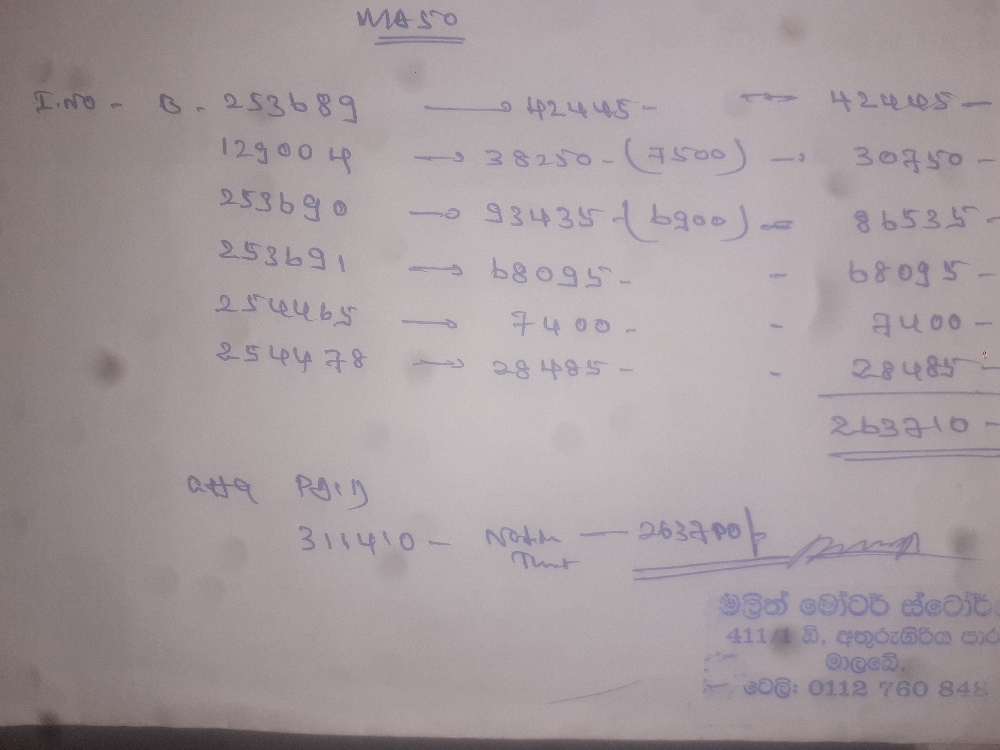 MASO
I.NO - B - 253689 → 42445 - 42445 -
129004 → 38250 - (7500) → 30750 -
253690 → 93435 - (6900) = 86535 -
253691 → 68095 - - 68095 -
254465 → 7400 - - 7400 -
254478 → 28485 - - 28485 -
263710 -
311410 - 263700/-
මලිත් මෝටර් ස්ටෝර්
411/1 ඩී, අතුරුගිරිය පාර
මාලබේ.
ටෙලි: 0112 760 848